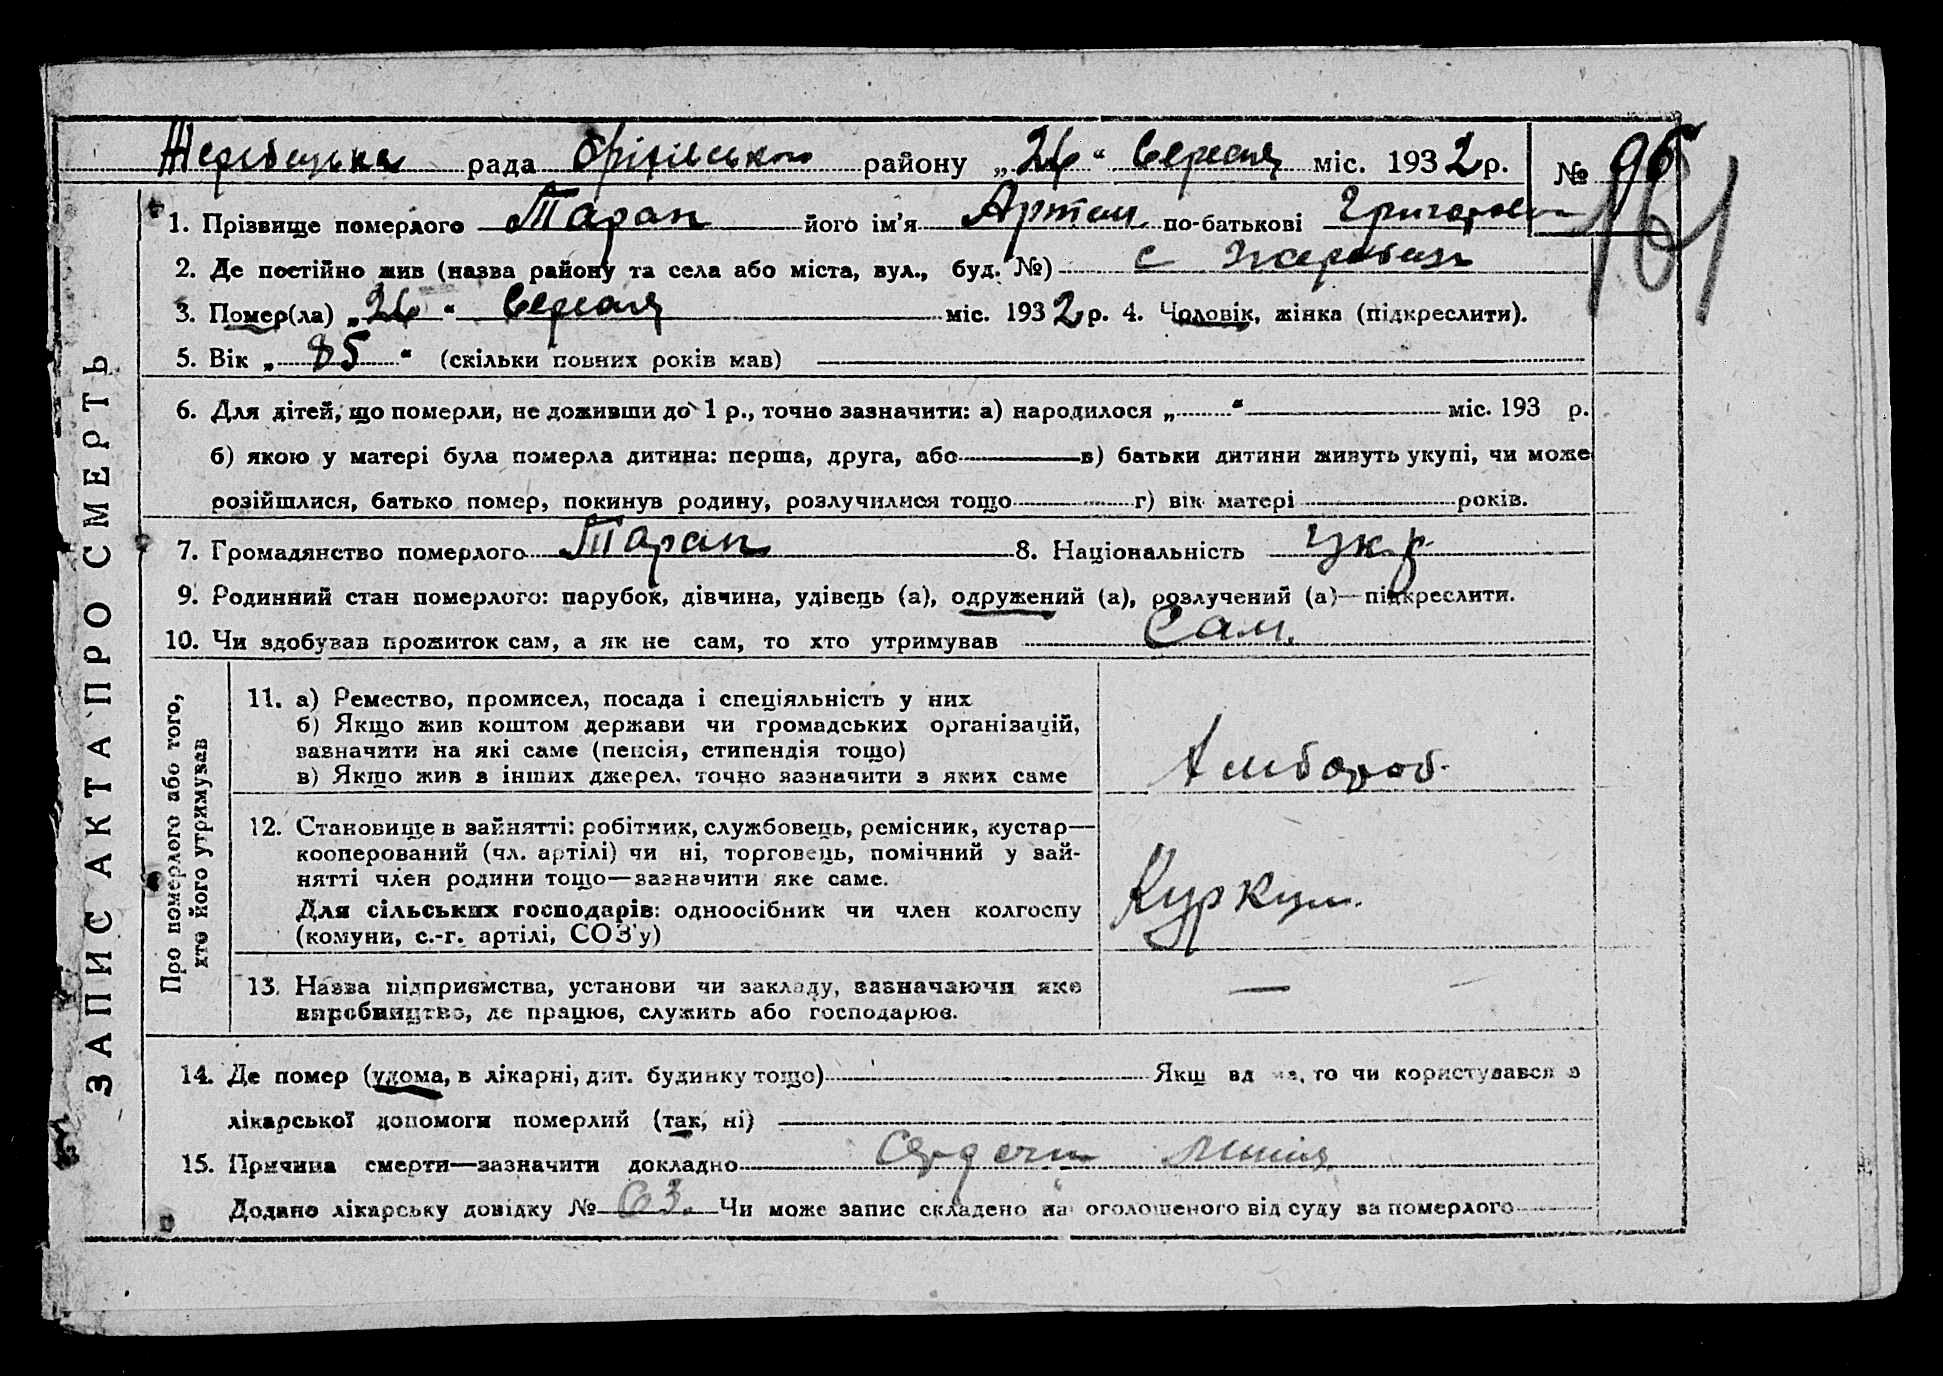 Жеребецька рада Оріхівського району „26“ Вересня міс. 1932 р. № 96
161
1. Прізвище померлого Таран його ім'я Артем по-батькові Григорович
2. Де постійно жив (назва району та села або міста, вул., буд. №) с Жеребець
3. Помер(ла) „26“ Вересня міс. 1932 р. 4. Чоловік, жінка (підкреслити).
5. Вік „85“ (скільки повних років мав)
6. Для дітей, що померли, не доживши до 1 р., точно зазначити: а) народилося „ “ міс. 193 р.
б) якою у матері була померла дитина: перша, друга, або в) батьки дитини живуть укупі, чи може
розійшлися, батько помер, покинув родину, розлучилися тощо г) вік матері років.
7. Громадянство померлого Таран 8. Національність Укр.
9. Родинний стан померлого: парубок, дівчина, удівець (а), одружений (а), розлучений (а)—підкреслити.
10. Чи здобував прожиток сам, а як не сам, то хто утримував Сам.
ЗАПИС АКТА ПРО СМЕРТЬ
Про померлого або того,
хто його утримував
11. а) Ремество, промисел, посада і спеціяльність у них
б) Якщо жив коштом держави чи громадських організацій,
зазначити на які саме (пенсія, стипендія тощо)
в) Якщо жив з інших джерел, точно зазначити з яких саме
12. Становище в зайнятті: робітник, службовець, ремісник, кустар—
кооперований (чл. артілі) чи ні, торговець, помічний у зай-
нятті член родини тощо—зазначити яке саме.
Для сільських господарів: одноосібник чи член колгоспу
(комуни, с.-г. артілі, СОЗ'у)
Куркуль.
13. Назва підприємства, установи чи закладу, зазначаючи яке
виробництво, де працює, служить або господарює. —
14. Де помер (удома, в лікарні, дит. будинку тощо) Якщ вд ма, то чи користувався з
лікарської допомоги померлий (так, ні)
15. Причина смерти—зазначити докладно
Додано лікарську довідку № 63. Чи може запис складено на оголошеного від суду за померлого